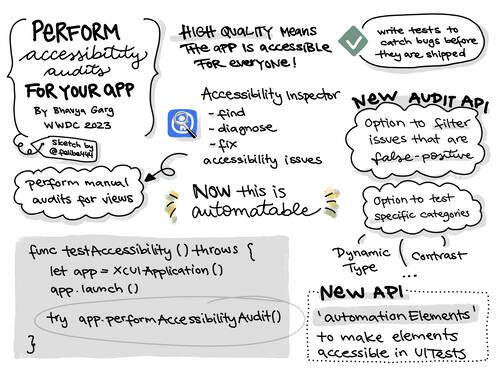 PERFORM
accessibility
audits
FOR YOUR APP
By Bhavya Garg
WWDC 2023
Sketch by
perform manual
audits for views
HIGH QUALITY MEANS
THE APP IS ACCESSIBLE
FOR EVERYONE!
write tests to
catch bugs before
they are shipped
Accessibility Inspector
- find
- diagnose
- fix
accessibility issues
NOW this is
automatable
NEW AUDIT API
Option to filter
issues that are
false-positive
Option to test
specific categories
Dynamic
Type
Contrast
...
func testAccessibility () throws {
let app = XCUIApplication ()
app.launch ()
try app.performAccessibilityAudit()
}
NEW API
'automationElements'
to make elements
accessible in UITests